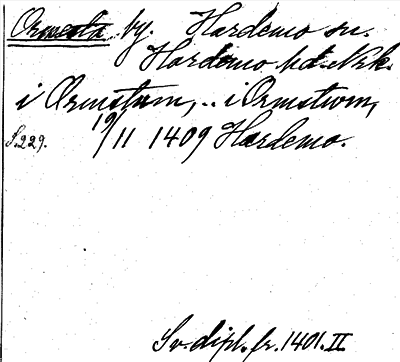 Ormesta by. Hardemo sn.
Hardemo hd. Nrk.
i Ørmstum, .. i Ørmstwm,
S. 229. 19/11 1409 Hardemo.
Sv. dipl. fr. 1401. II